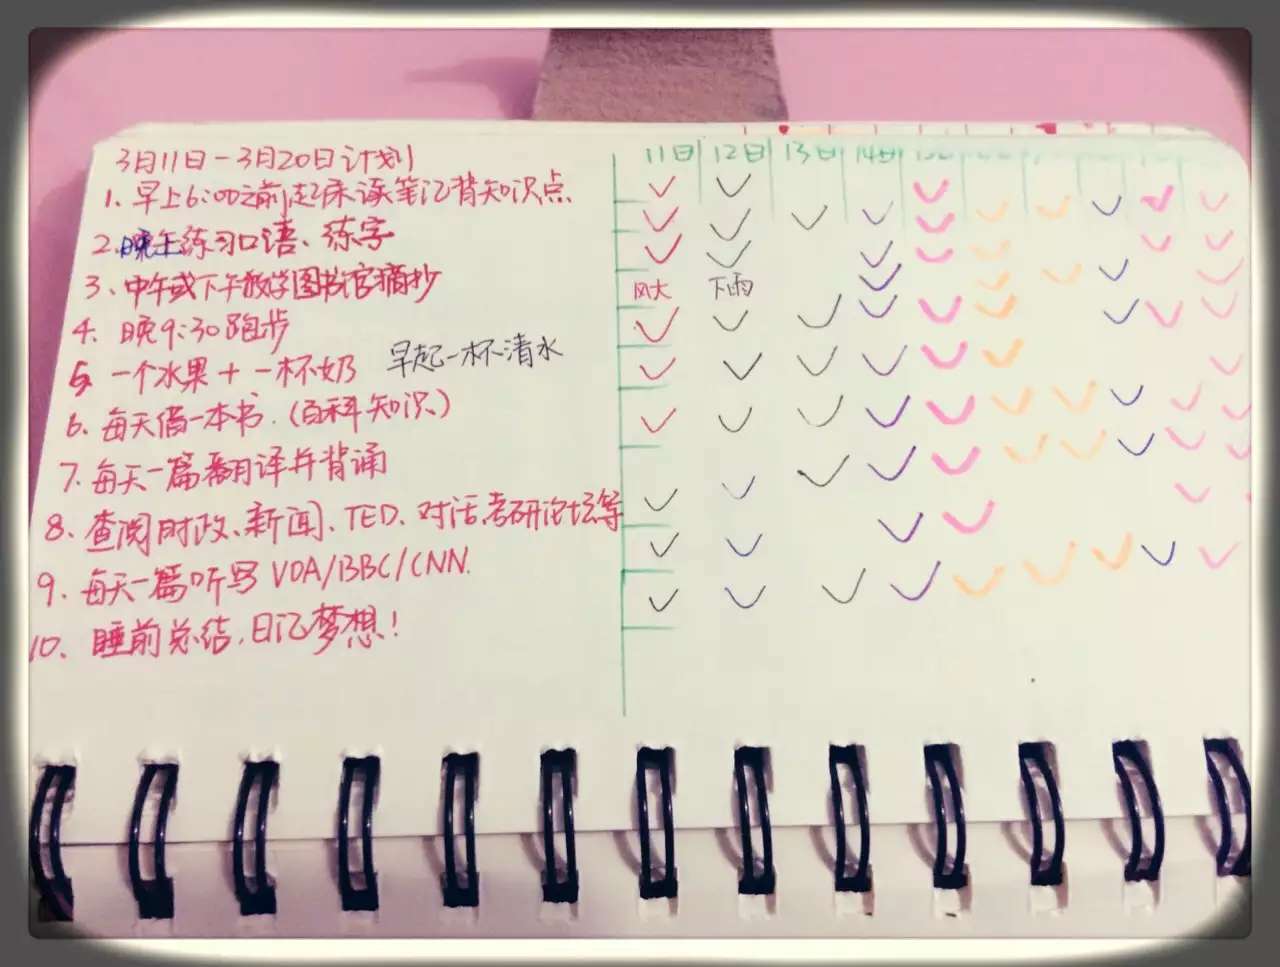 3月11日-3月20日计划
11日 12日 13日 14日 15日
1、早上6:00之前起床读笔记背知识点
2、晚上练习口语、练字
3、中午或下午教学图书馆摘抄
风大 下雨
4、晚9:30跑步
5 一个水果+一杯奶 早起一杯清水
6、每天借一本书.(百科知识)
7、每天一篇翻译并背诵
8、查阅时政、新闻、TED、对话,考研论坛等
9、每天一篇听写 VOA/BBC/CNN.
10、睡前总结,日记梦想!